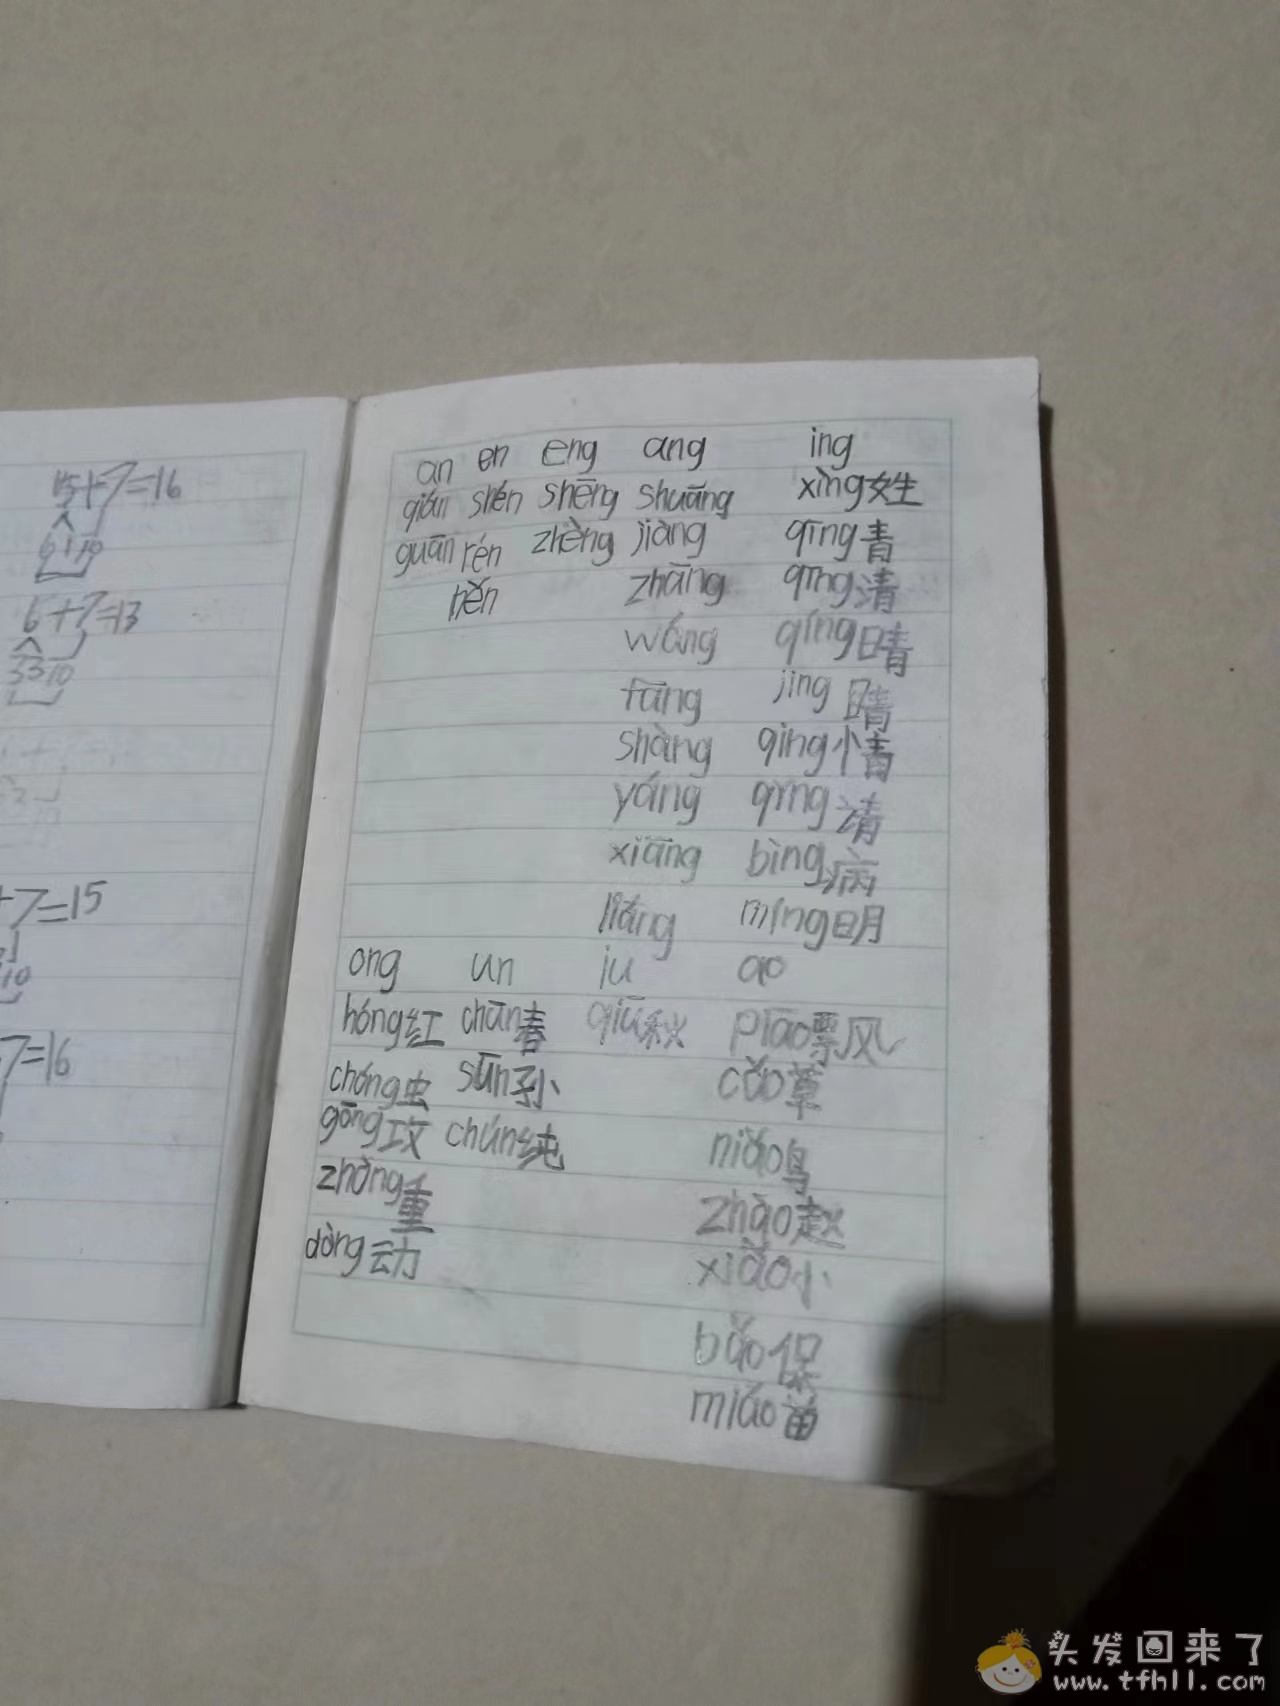 15+7=16
6 1 10
6+7=13
3 3 10
+7=15
10
7=16
an en eng ang ing
qián shén shēng shuāng xìng姓
guān rén zhèng jiàng qīng青
hěn zhāng qīng清
wáng qíng晴
fāng jing睛
shàng qíng情
yáng qǐng请
xiāng bìng病
liǎng míng明
ong un iu ao
hóng红 chūn春 qiū秋 piāo飘
chóng虫 sūn孙 cǎo草
gōng攻 chún纯 niǎo鸟
zhòng重 zhào赵
dòng动 xiǎo小
bǎo保
miáo苗
头发回来了
www.tfhll.com